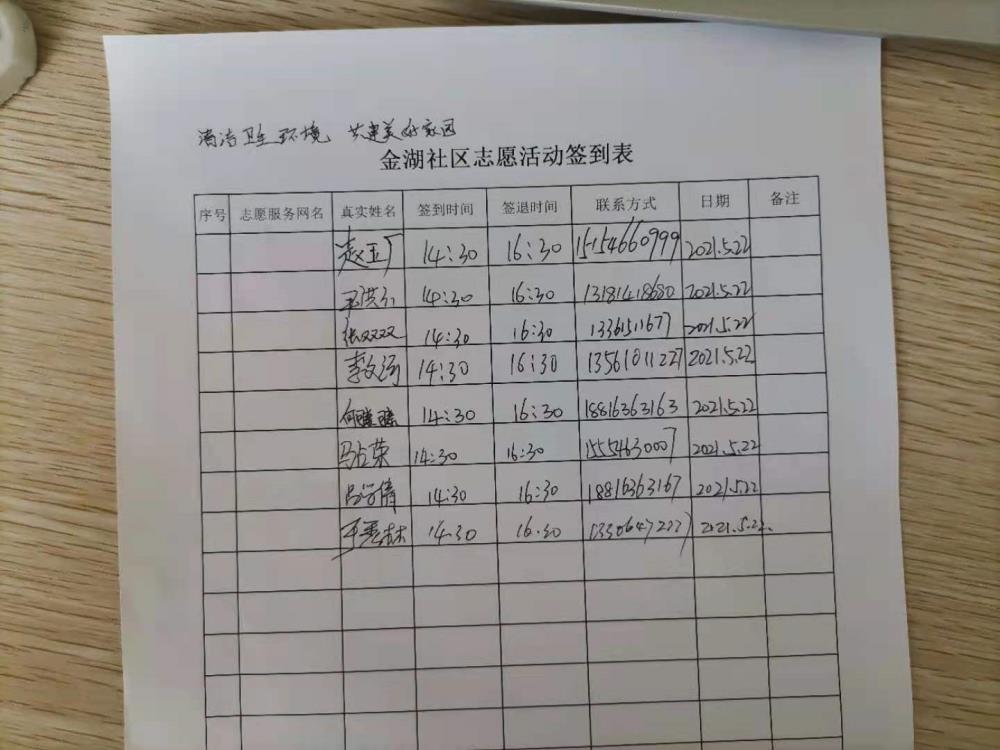 清洁卫生环境 共建美好家园
金湖社区志愿活动签到表
序号 志愿服务网名 真实姓名 签到时间 签退时间 联系方式 日期 备注
赵玉厂 14:30 16:30 15154660999 2021.5.22
14:30 16:30 13181418680 2021.5.22
张双双 14:30 16:30 1336151167 2021.5.22
李文河 14:30 16:30 13561811227 2021.5.22
何 14:30 16:30 18816363163 2021.5.22
马占荣 14:30 16:30 15554630007 2021.5.22
吕学倩 14:30 16:30 18816363167 2021.5.22
14:30 16:30 2021.5.22.